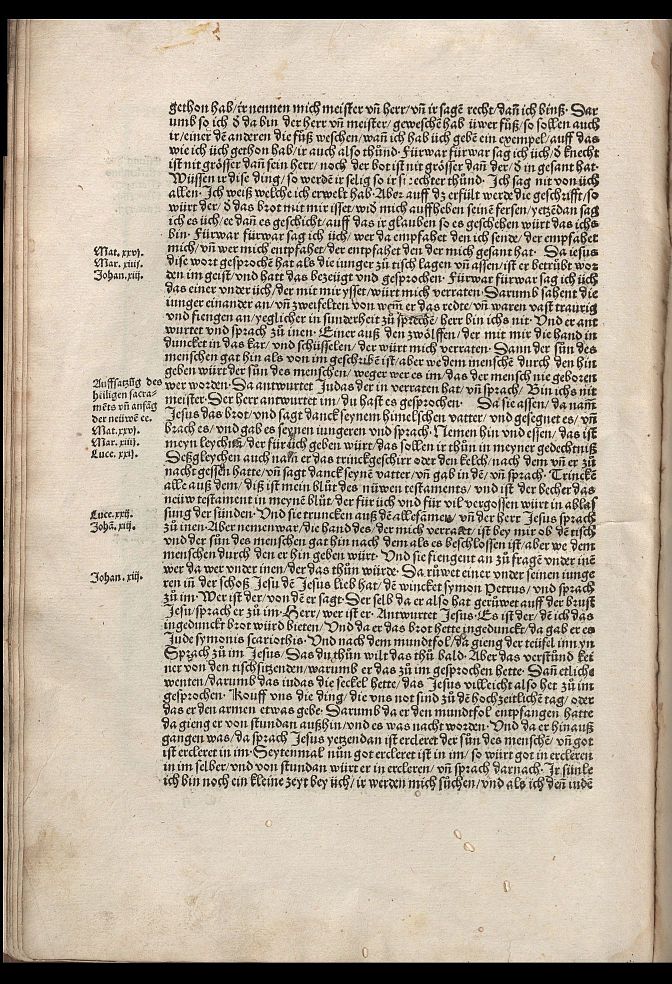 gethon hab/ ir nennen mich meister vñ herr/ vñ ir sagẽ recht/ dañ ich binß· Dar
umb so ich d̕ da bin der herr vñ meister/ geweschẽ hab üwer füß/ so sollen auch
ir/ einer dẽ anderen die füß weschen/ wañ ich hab üch gebẽ ein exempel/ auff das
wie ich üch gethon hab/ ir auch also thünd· Fürwar fürwar sag ich üch/ d̕ knecht
ist nit grösser dañ sein herr/ noch der bot ist nit grösser dañ der/ d̕ in gesant hat·
Wüssen ir dise ding/ so werdẽ ir selig so ir si rechter thünd· Ich sag nit von üch
allen· Ich weiß welche ich erwelt hab· Aber auff dz erfült werde die geschrifft/ so
würt der/ d̕ das brot mit mir isset/ wid̕ mich auffheben seinẽ fersen/ yetzẽdan sag
ich es üch/ ee dañ es geschicht/ auff das ir glauben so es geschehen würt das ichs
bin· Fürwar fürwar sag ich üch/ wer da empfahet den ich sende/ der empfahet
mich/ vñ wer mich entpfahet/ der entpfahet den der mich gesant hat· Da iesus
dise wort gesprochẽ hat als die iunger zů tisch lagen vñ assen/ ist er betrübt wor
den im geist/ vnd hatt das bezeügt vnd gesprochen· Fürwar fürwar sag ich üch
das einer vnder üch/ der mit mir ysset/ würt mich verraten· Darumb sahent die
iunger einander an/ vñ zweifelten von wem er das redte/ vñ waren vast traurig
vnd fiengen an/ yeglicher in sunderheit zů sprechẽ/ herr bin ichs nit· Vnd er ant
wurtet vnd sprach zů inen· Einer auß den zwölffen/ der mit mir die hand in
duncket in das kar/ vnd schüsselen/ der würt mich verraten· Dann der sün des
menschen gat hin als von im geschribẽ ist/ aber we dem menschẽ durch den hin
geben würt der sün des menschen/ weger wer es im/ das der mensch nie geboren
wer worden· Da antwurtet Judas der in verraten hat/ vñ sprach/ Bin ichs nit
meister· Der herr antwurtet im/ du hast es gesprochen· Da sie assen/ da nam
Jesus das brot/ vnd sagt danck seynem himelschen vatter/ vnd gesegnet es/ vñ
brach es/ vnd gab es seynen iungeren vnd sprach· Nemen hin vnd essen/ das ist
meyn leychnam/ der für üch geben würt/ das sollen ir thůn in meyner gedechtniß
Deßgleychen auch nam er das trinckgeschirr oder den kelch/ nach dem vñ er zů
nacht gessen hatte/ vñ sagt danck seynẽ vatter/ vñ gab in dẽ/ vñ sprach· Trinckẽ
alle auß dem/ diß ist mein blůt des nüwen testaments/ vnd ist der becher das
neüw testament in meynẽ blůt/ der für üch vnd für vil vergossen würt in ablas
sung der sünden· Vnd sie truncken auß dẽ allesamen/ vñ der herr Jesus sprach
zů inen· Aber nemen war/ die hand des/ der mich verratet/ ist bey mir ob dẽ tisch
vnd der sün des menschen gat hin nach dem als es beschlossen ist/ aber we dem
menschen durch den er hin geben würt· Vnd sie fiengent an zů fragẽ vnder inẽ
wer da wer vnder inen/ der das thůn würde· Da růwet einer vnder seinen iunge
ren in der schoß Jesu dẽ Jesus lieb hat/ dẽ wincket symon Petrus/ vnd sprach
zů im· Wer ist der/ von dẽ er sagt· Der selb da er also hat gerüwet auff der brust
Jesu/ sprach er zů im· Herr/ wer ist er· Antwurtet Jesus· Es ist der/ dẽ ich das
ingedunckt brot würd bieten/ Vnd da er das brot hette ingedunckt/ da gab er es
Jude symonis scariothis· Vnd nach dem mundtfol/ da gieng der teüfel inn yn
Sprach zů im Jesus/ Das du thůn wilt das thů bald· Aber das verstůnd kei
ner von den tischsitzenden/ warumb er das zů im gesprochen hette· Dañ etliche
wenten/ darumb das iudas die seckel hette/ das Jesus villeicht also het zů im
gesprochen· Kouff vns die ding/ die vns not sind zů dẽ hochzeitlichẽ tag/ oder
das er den armen etwas gebe· Darumb da er den mundtfol entpfangen hatte
da gieng er von stundan außhin/ vnd es was nacht worden· Vnd da er hinauß
gangen was/ da sprach Jesus yetzendan ist ercleret der sün des menschẽ/ vñ got
ist ercleret in im· Seytenmal nůn got ercleret ist in im/ so würt got in ercleren
in im selber/ vnd von stundan würt er in ercleren/ vñ sprach darnach· Ir sünle
ich bin noch ein kleine zeyt bey üch/ ir werden mich sůchen/ vnd als ich den iudẽ
Mat. xxvj.
Mar. xiiij.
Johan. xiij.
Auffsatzũg des
heiligen sacra-
mẽts vñ anfãg
der neüwẽ ee.
Mat. xxvj.
Mar. xiiij.
Luce. xxij.
Luce. xxij.
Johã. xiij.
Johan. xiij.